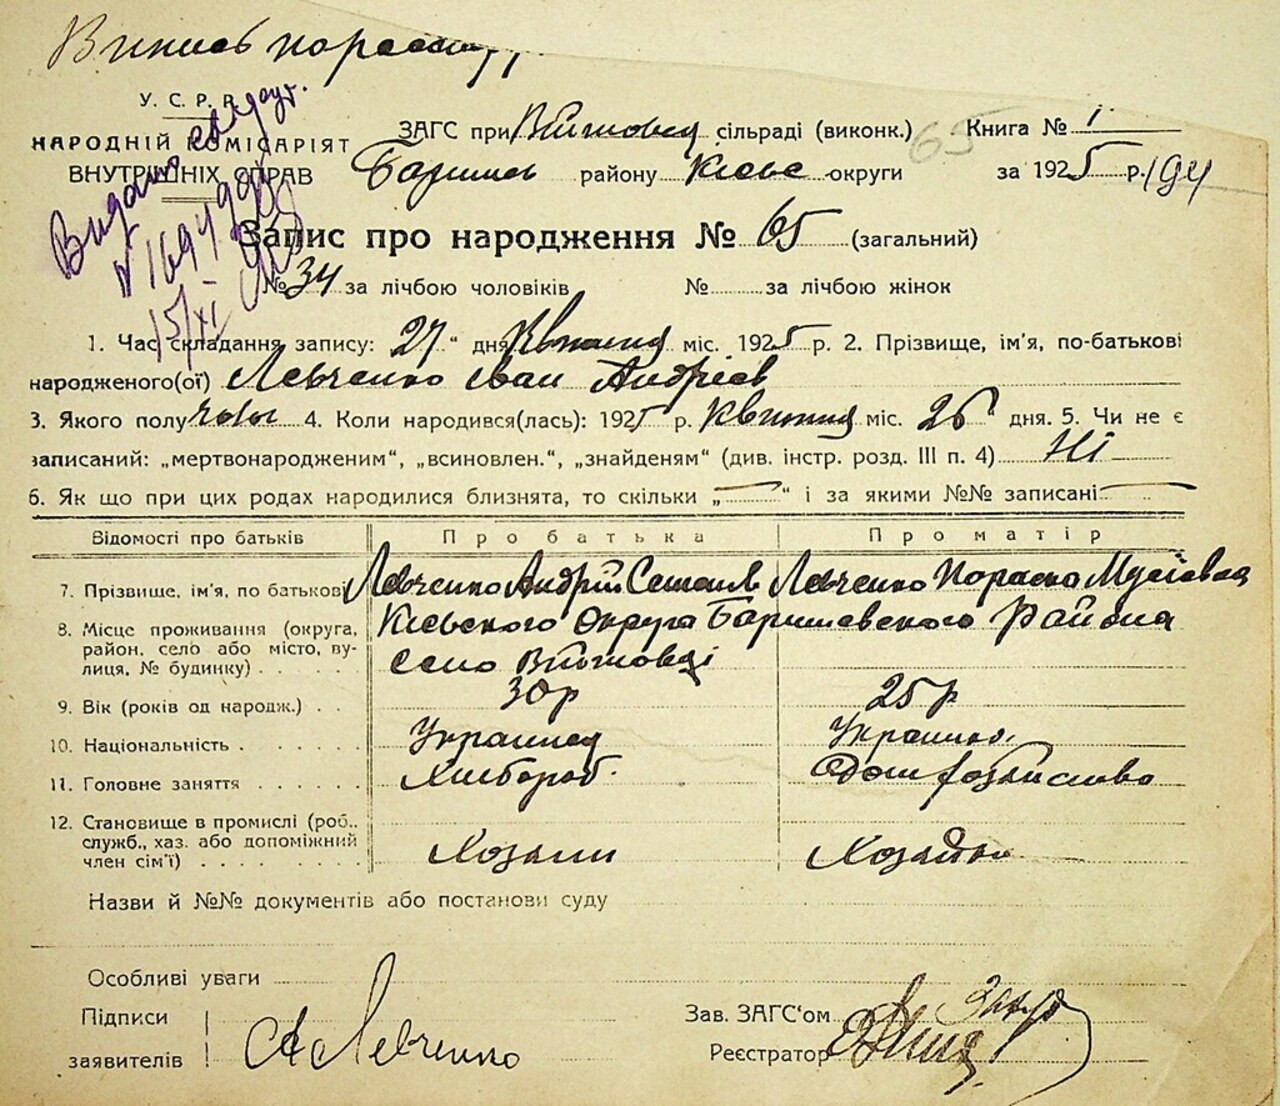 У. С. Р. Р.
НАРОДНІЙ КОМІСАРІЯТ
ВНУТРІШНІХ СПРАВ
Видано
№ 1694990
15/XI
ЗАГС при сільраді (виконк.) 65 Книга № 1
Баришів району Київс округи за 1925 р. 194
Запис про народження № 65 (загальний)
№ 34 за лічбою чоловіків № за лічбою жінок
1. Час складання запису: 27 “ дня Квітня міс. 1925 р. 2. Прізвище, ім'я, по-батькові
народженого(ої) Левченко Іван Андріев
3. Якого полу чолов 4. Коли народився(лась): 1925 р. Квітня міс. 26 дня. 5. Чи не є
записаний: „мертвонародженим“, „всиновлен.“, „знайденям“ (див. інстр. розд. III п. 4) Ні
6. Як що при цих родах народилися близнята, то скільки „ — “ і за якими №№ записані —
Відомості про батьків Про батька Про матір
7. Прізвище, ім'я, по батькові Левченко Андрій Семенів Левченко Параска Мусіевна
8. Місце проживання (округа, район, село або місто, вулиця, № будинку) Киевського Округа Баришевского Района
село Війтовці
9. Вік (років од народж.) 30 р 25 р
10. Національність Украинец Украинка
11. Головне заняття Хлибороб. Дом хозайство
12. Становище в промислі (роб., служб., хаз. або допоміжний член сім'ї) Хозаин Хозайка
Назви й №№ документів або постанови суду
Особливі уваги
Підписи заявителів А Левченко
Зав. ЗАГС'ом
Реєстратор